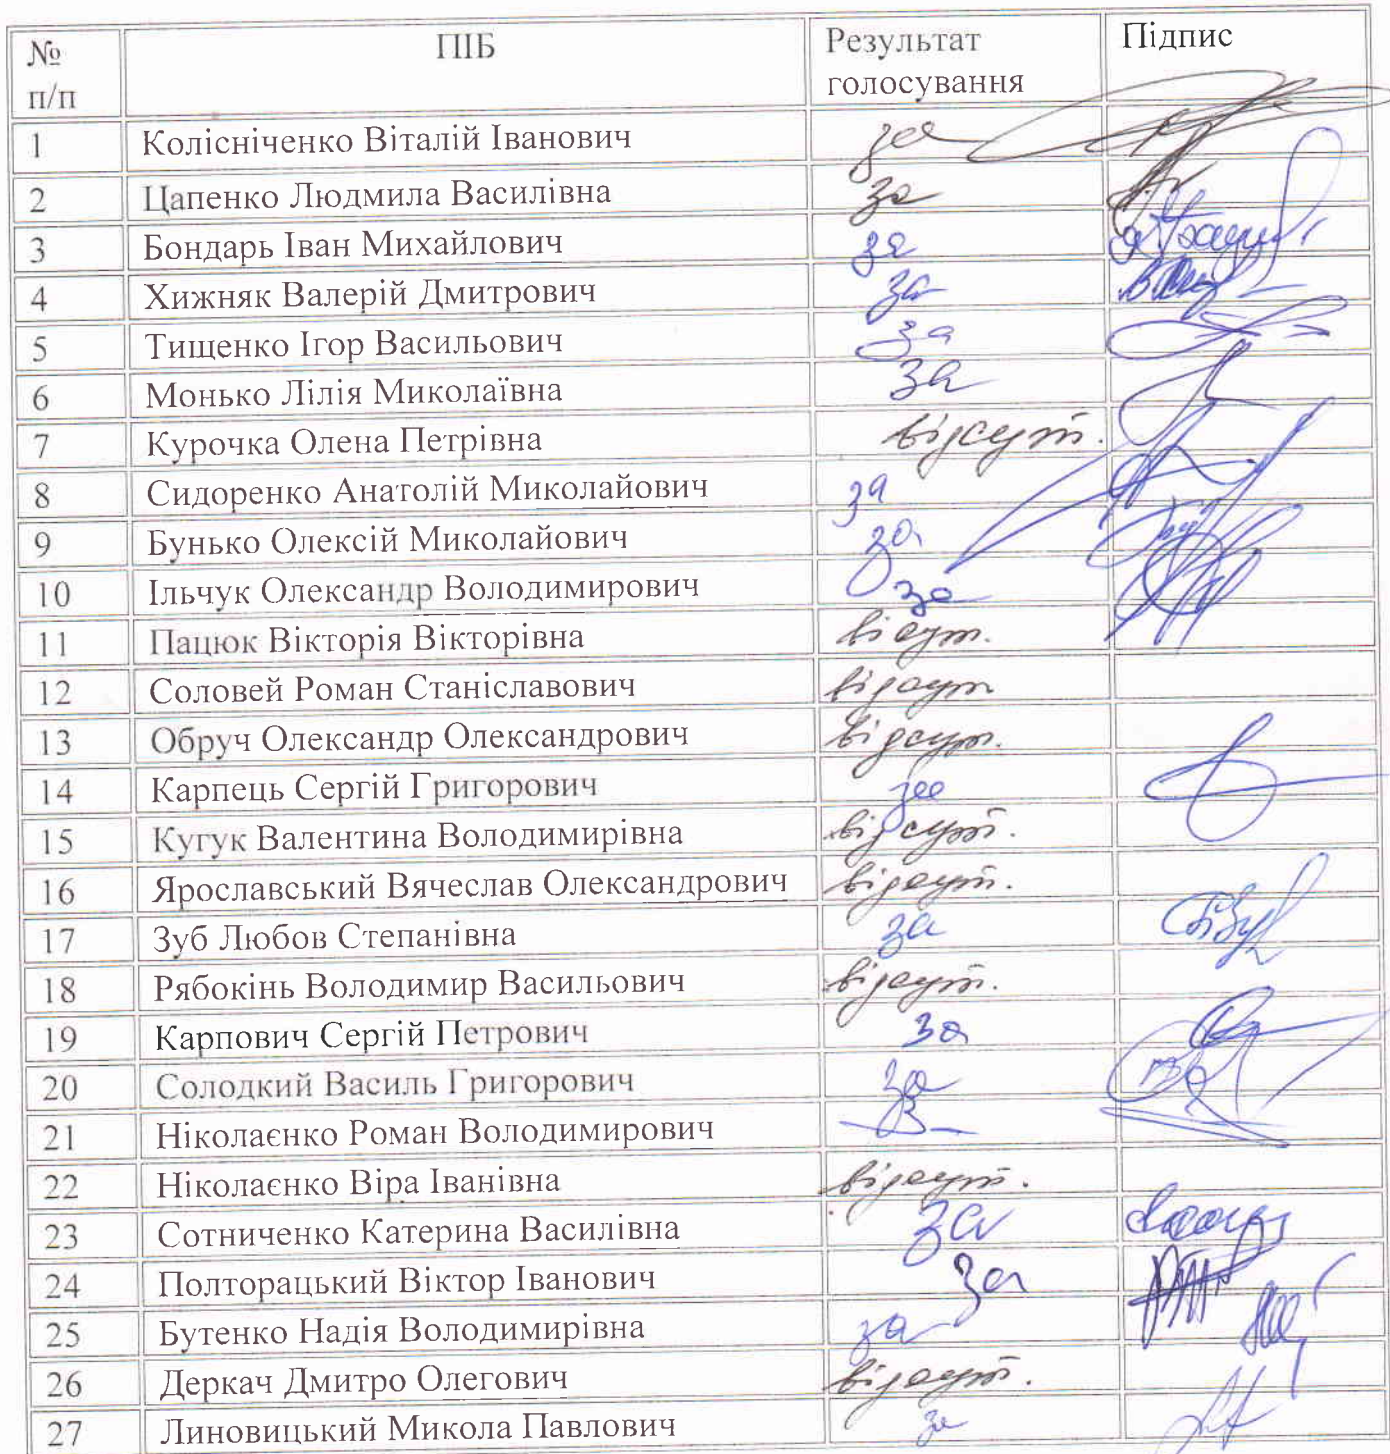 № п/п ПІБ Результат голосування Підпис
1 Колісніченко Віталій Іванович за
2 Цапенко Людмила Василівна за
3 Бондарь Іван Михайлович за
4 Хижняк Валерій Дмитрович за
5 Тищенко Ігор Васильович за
6 Монько Лілія Миколаївна за
7 Курочка Олена Петрівна відсут.
8 Сидоренко Анатолій Миколайович за
9 Бунько Олексій Миколайович за
10 Ільчук Олександр Володимирович за
11 Пацюк Вікторія Вікторівна
12 Соловей Роман Станіславович відсут
13 Обруч Олександр Олександрович відсут.
14 Карпець Сергій Григорович за
15 Кугук Валентина Володимирівна відсут.
16 Ярославський Вячеслав Олександрович відсут.
17 Зуб Любов Степанівна за
18 Рябокінь Володимир Васильович відсут.
19 Карпович Сергій Петрович за
20 Солодкий Василь Григорович за
21 Ніколаєнко Роман Володимирович
22 Ніколаєнко Віра Іванівна відсут.
23 Сотниченко Катерина Василівна за
24 Полторацький Віктор Іванович за
25 Бутенко Надія Володимирівна за
26 Деркач Дмитро Олегович відсут.
27 Линовицький Микола Павлович за